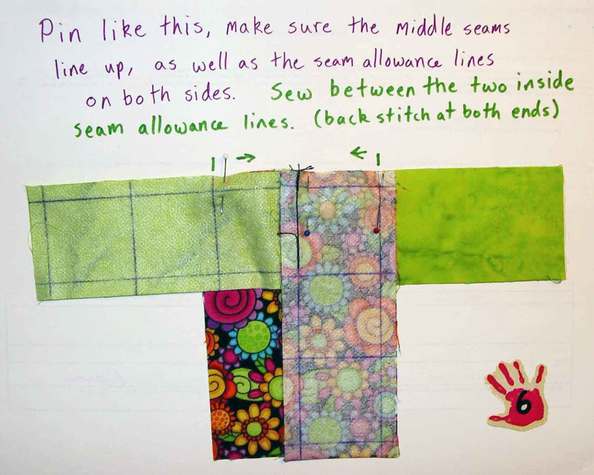 Pin like this, make sure the middle seams
line up, as well as the seam allowance lines
on both sides. Sew between the two inside
seam allowance lines. (back stitch at both ends)
6